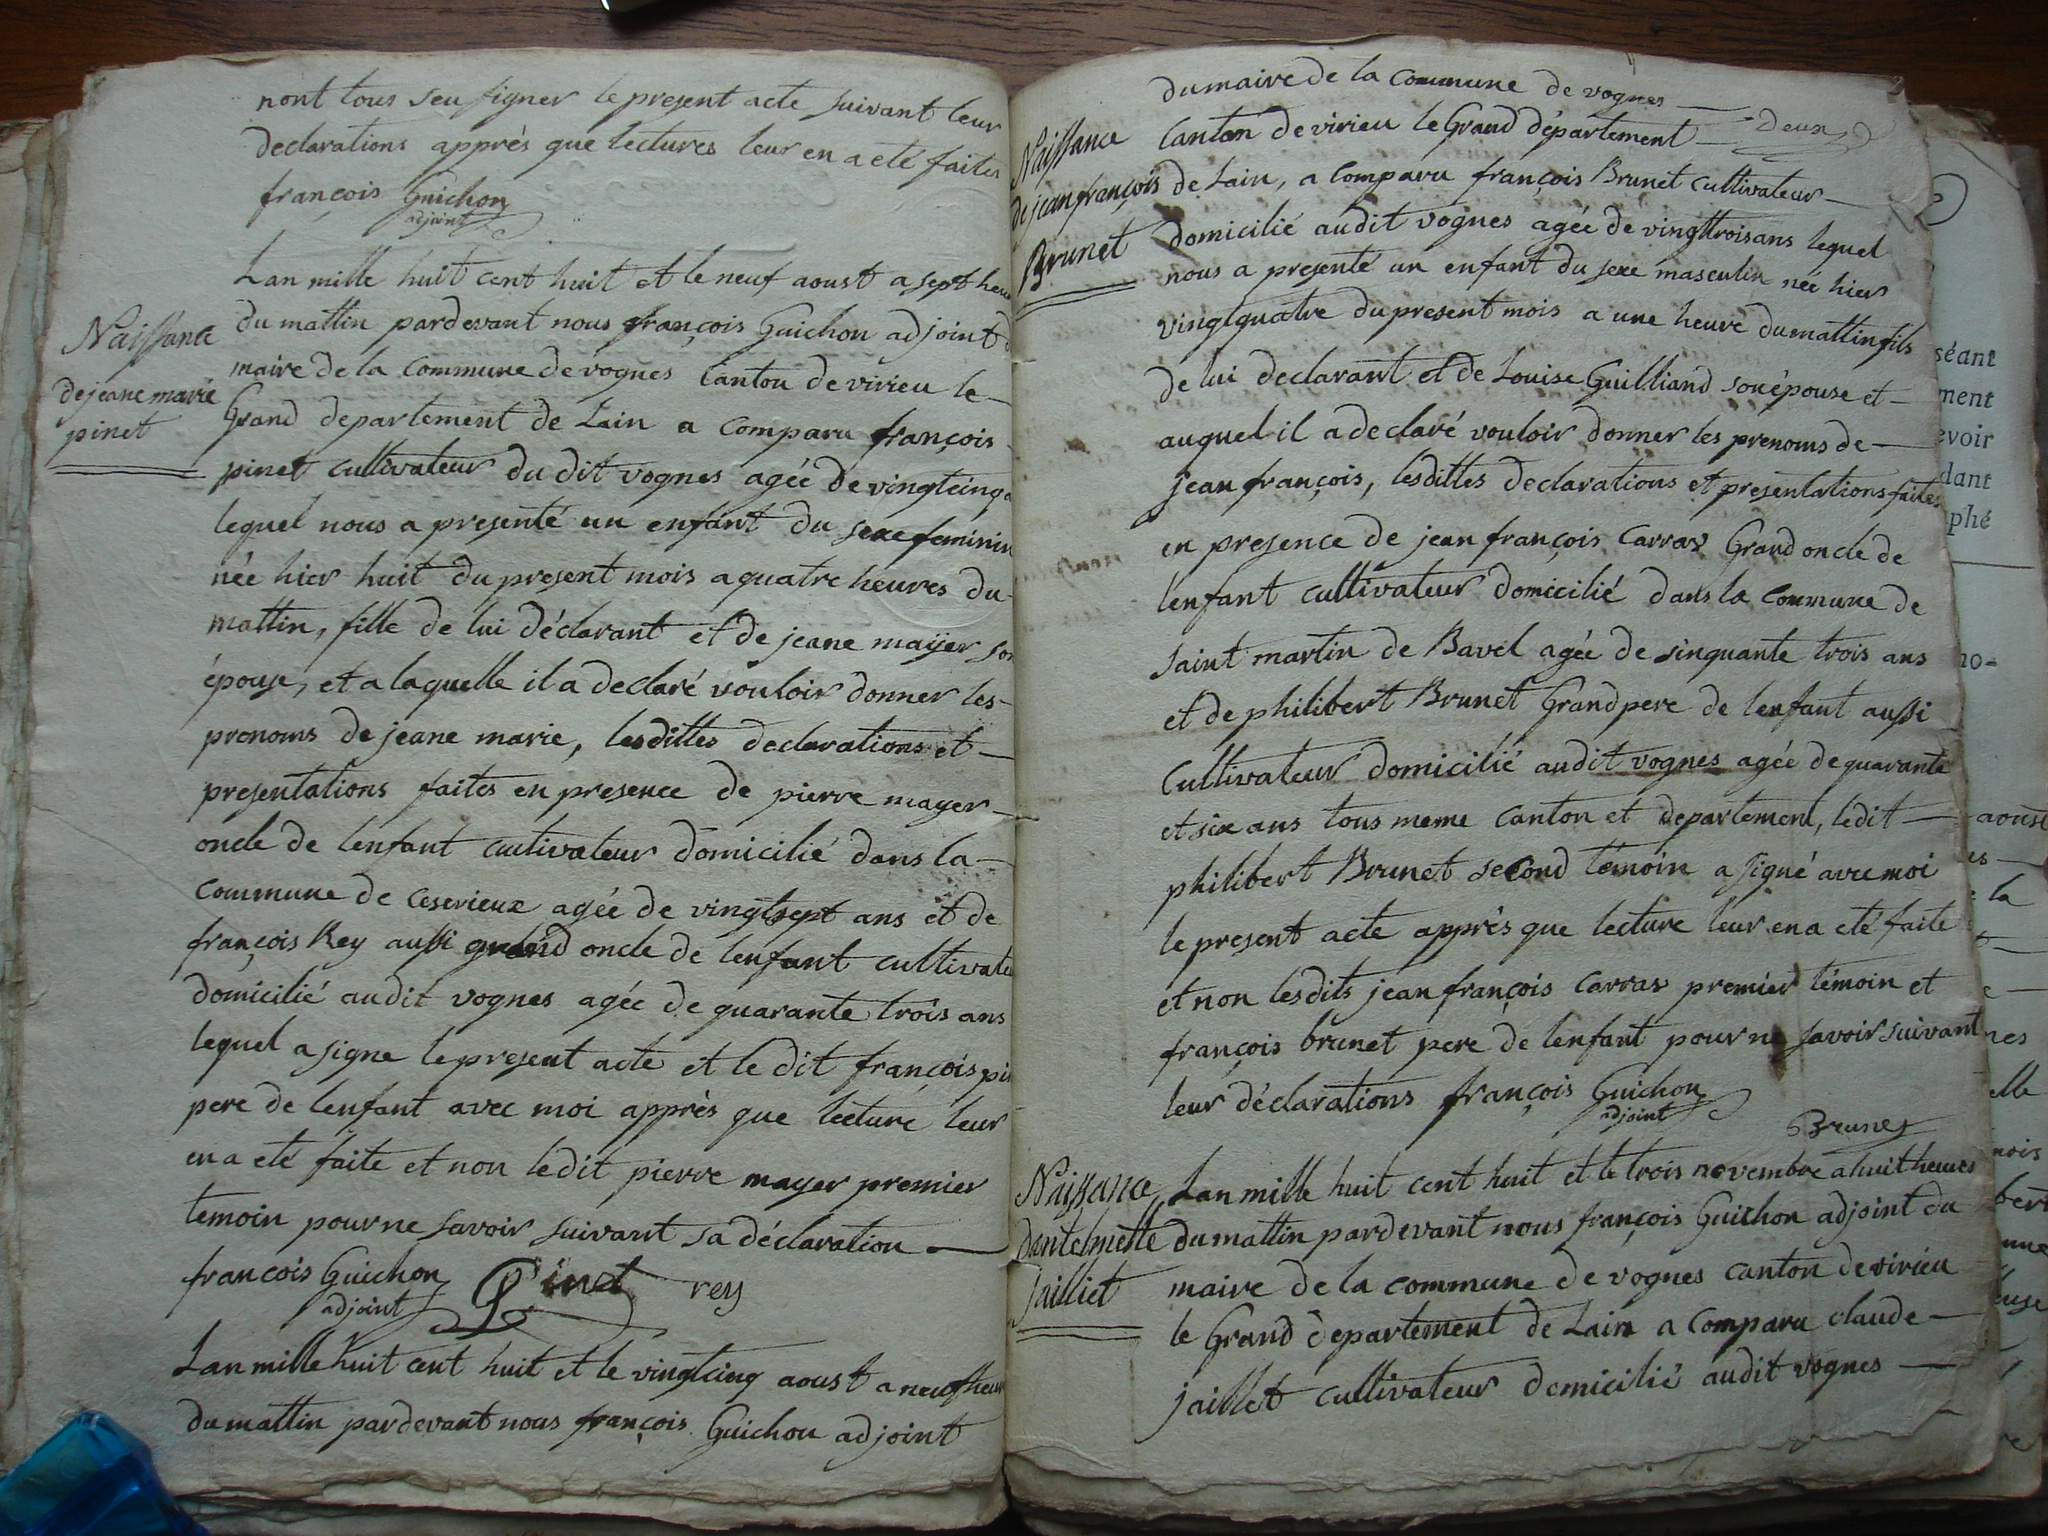 nont tous seu signer le present acte suivant leur
declarations apprès que lectures leur en a eté faites
françois Guichon
adjoint
Lan mille huit cent huit et le neuf aoust a sept heu
du mattin pardevant nous françois Guichon adjoint d
Naissance
maire de la commune de vognes canton de virieu le
de jeane marie
Grand departement de Lain a comparu françois
pinet
pinet cultivateur du dit vognes agée de vingtcinq a
lequel nous a presenté un enfant du sexe feminin
née hier huit du present mois a quatre heures du
mattin, fille de lui déclarant et de jeane mayer son
épouse, et a laquelle il a declaré vouloir donner les
prenoms de jeane marie, lesdittes declarations et
presentations faites en presence de pierre mayer
oncle de lenfant cultivateur domicilié dans la
commune de ceserieux agée de vingtsept ans et de
françois Rey aussi grand oncle de lenfant cultivate
domicilié audit vognes agée de quarante trois ans
lequel a signe le present acte et le dit françois pi
pere de lenfant avec moi apprès que lecture leur
en a eté faite et non ledit pierre mayer premier
temoin pour ne savoir suivant sa déclaration
françois Guichon Pinet rey
adjoint
Lan mille huit cent huit et le vingtcinq aoust a neuf heu
du mattin pardevant nous françois Guichon adjoint
du maire de la commune de vognes
canton de virieu le Grand département deux
Naissance
de jean françois
Brunet
de Lain, a comparu françois Brunet cultivateur
domicilié audit vognes agée de vingttrois ans lequel
nous a presenté un enfant du sexe masculin née hier
vingtquatre du present mois a une heure du mattin fils
de lui declarant et de Louise Guilliand son épouse et
auquel il a declaré vouloir donner les prenoms de
jean françois, lesdittes declarations et presentations faites
en presence de jean françois Carras Grand oncle de
lenfant cultivateur domicilié dans la commune de
saint martin de Bavel agée de sinquante trois ans
et de philibert Brunet Grand pere de lenfant aussi
cultivateur domicilié audit vognes agée de quarante
et six ans tous meme canton et departement, ledit
philibert Brunet second témoin a signé avec moi
le present acte apprès que lecture leur en a eté faite
et non lesdits jean françois carras premier témoin et
françois brunet pere de lenfant pour ne savoir suivant
leur déclarations françois Guichon
adjoint
Brunet
Naissance
dantelmette
Jailliet
Lan mille huit cent huit et le trois novembre a huit heures
du mattin pardevant nous françois Guichon adjoint du
maire de la commune de vognes canton de virieu
le Grand departement de Lain a comparu claude
jaillet cultivateur domicilié audit vognes
séant
ment
evoir
dant
phé
aoust
la